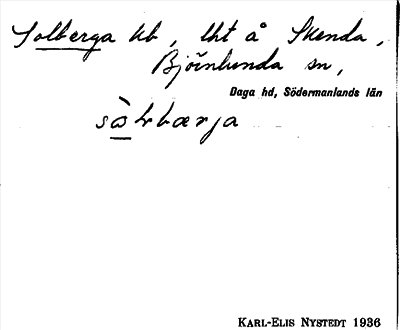 Solberga ub, tht å Skenda,
Björnlunda sn,
Daga hd, Södermanlands län
sòₒlrbærja
KARL-ELIS NYSTEDT 1936